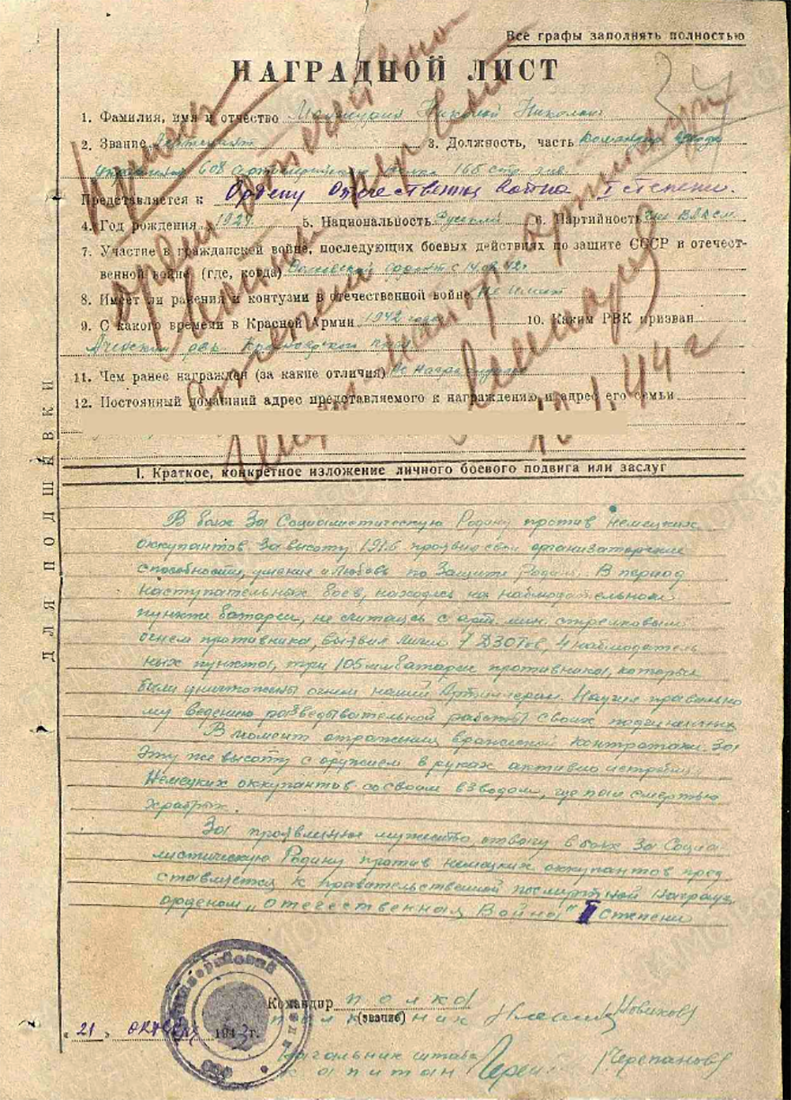 Все графы заполнять полностью
НАГРАДНОЙ ЛИСТ
1. Фамилия, имя и отчество Николай
2. Звание Лейтенант 3. Должность, часть Командир взвода
управления 608 артиллерийского полка 165 стр. див
Представляется к Ордену Отечественная война степени.
4. Год рождения 5. Национальность Русский 6. Партийность чл. ВЛКСМ
7. Участие в гражданской войне, последующих боевых действиях по защите СССР и отечест-
венной войне (где, когда) фронт с
8. Имеет ли ранения и контузии в отечественной войне Не имеет
9. С какого времени в Красной Армии 1942 года 10. Каким РВК призван
Ачинский рвк Красноярского края
11. Чем ранее награжден (за какие отличия) Не награждался
12. Постоянный домашний адрес представляемого к награждению и адрес его семьи
I. Краткое, конкретное изложение личного боевого подвига или заслуг
В боях За Социалистическую Родину против Немецких
оккупантов За высоту проявил свои организаторские
способности, умение и Любовь по Защите Родины. В период
наступательных боев, находясь на наблюдательном
пункте батареи, не считаясь с арт. мин. стрелковым
огнем противника, выявил лично 7 ДЗОТов, 4 наблюдатель
ных пункта, три 105 мм батареи противника, которые
были уничтожены огнем нашей Артиллерии. Научил правильно
му ведению разведывательной работы своих подчиненных
В момент отражения вражеской контратаки За
эту же высоту с оружием в руках активно истреблял
Немецких оккупантов со своим взводом, где пал смертью
храбрых.
За проявленное мужество, отвагу в боях За Социа-
листическую Родину против немецких оккупантов пред
ставляется к правительственной посмертной Награде
орденом „Отечественная Война" II степени
Командир полка
(звание)
полковник Новиков
„21" октября 194 г.
Начальник штаба
капитан Черепанов
ДЛЯ ПОДШИВКИ
орден отечественной
войны первой
степени
майор артиллерии
10.1.44 г